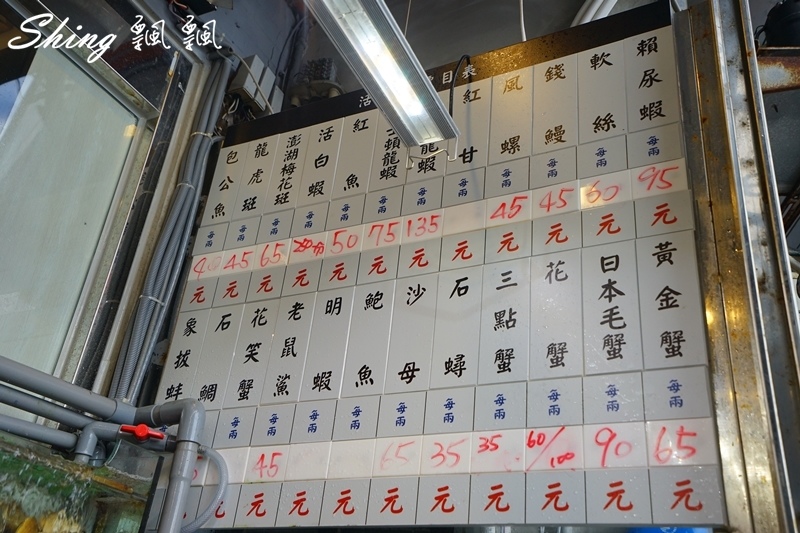 Shing 飄飄
活 目表
賴尿蝦 每兩 95 元
軟絲 每兩 60 元
錢鰻 每兩 45 元
風螺 每兩 45 元
紅甘 每兩 元
龍蝦 每兩 135 元
賴龍蝦 每兩 75 元
紅魚 每兩 50 元
活白蝦 每兩 元
澎湖梅花斑 每兩 65 元
龍虎斑 每兩 45 元
包公魚 每兩 元
黃金蟹 每兩 65 元
日本毛蟹 每兩 90 元
花蟹 每兩 60/100 元
三點蟹 每兩 35 元
石蟳 每兩 35 元
沙母 每兩 65 元
鮑魚 每兩 元
明蝦 每兩 元
老鼠鯊 每兩 元
花笑蟹 每兩 45 元
石鯛 每兩 元
象拔蚌